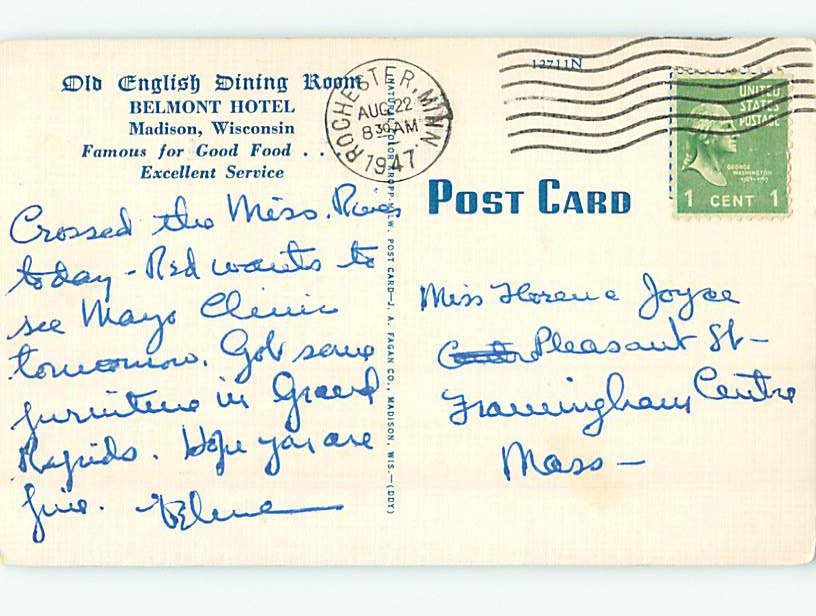 Old English Dining Room
BELMONT HOTEL
Madison, Wisconsin
Famous for Good Food . .
Excellent Service
Crossed the Miss. River
today - Red wants to
see Mayo Clinic
tomorrow. Got some
furniture in Grand
Rapids. Hope you are
fine.
ROCHESTER, MINN.
AUG 22
8 30 AM
1947
12711N
POST CARD—J. A. FAGAN CO., MADISON, WIS.—(DDY)
UNITED
STATES
POSTAGE
GEORGE
WASHINGTON
1 CENT 1
POST CARD
Miss Florence Joyce
Pleasant St-
Framingham Centre
Mass-